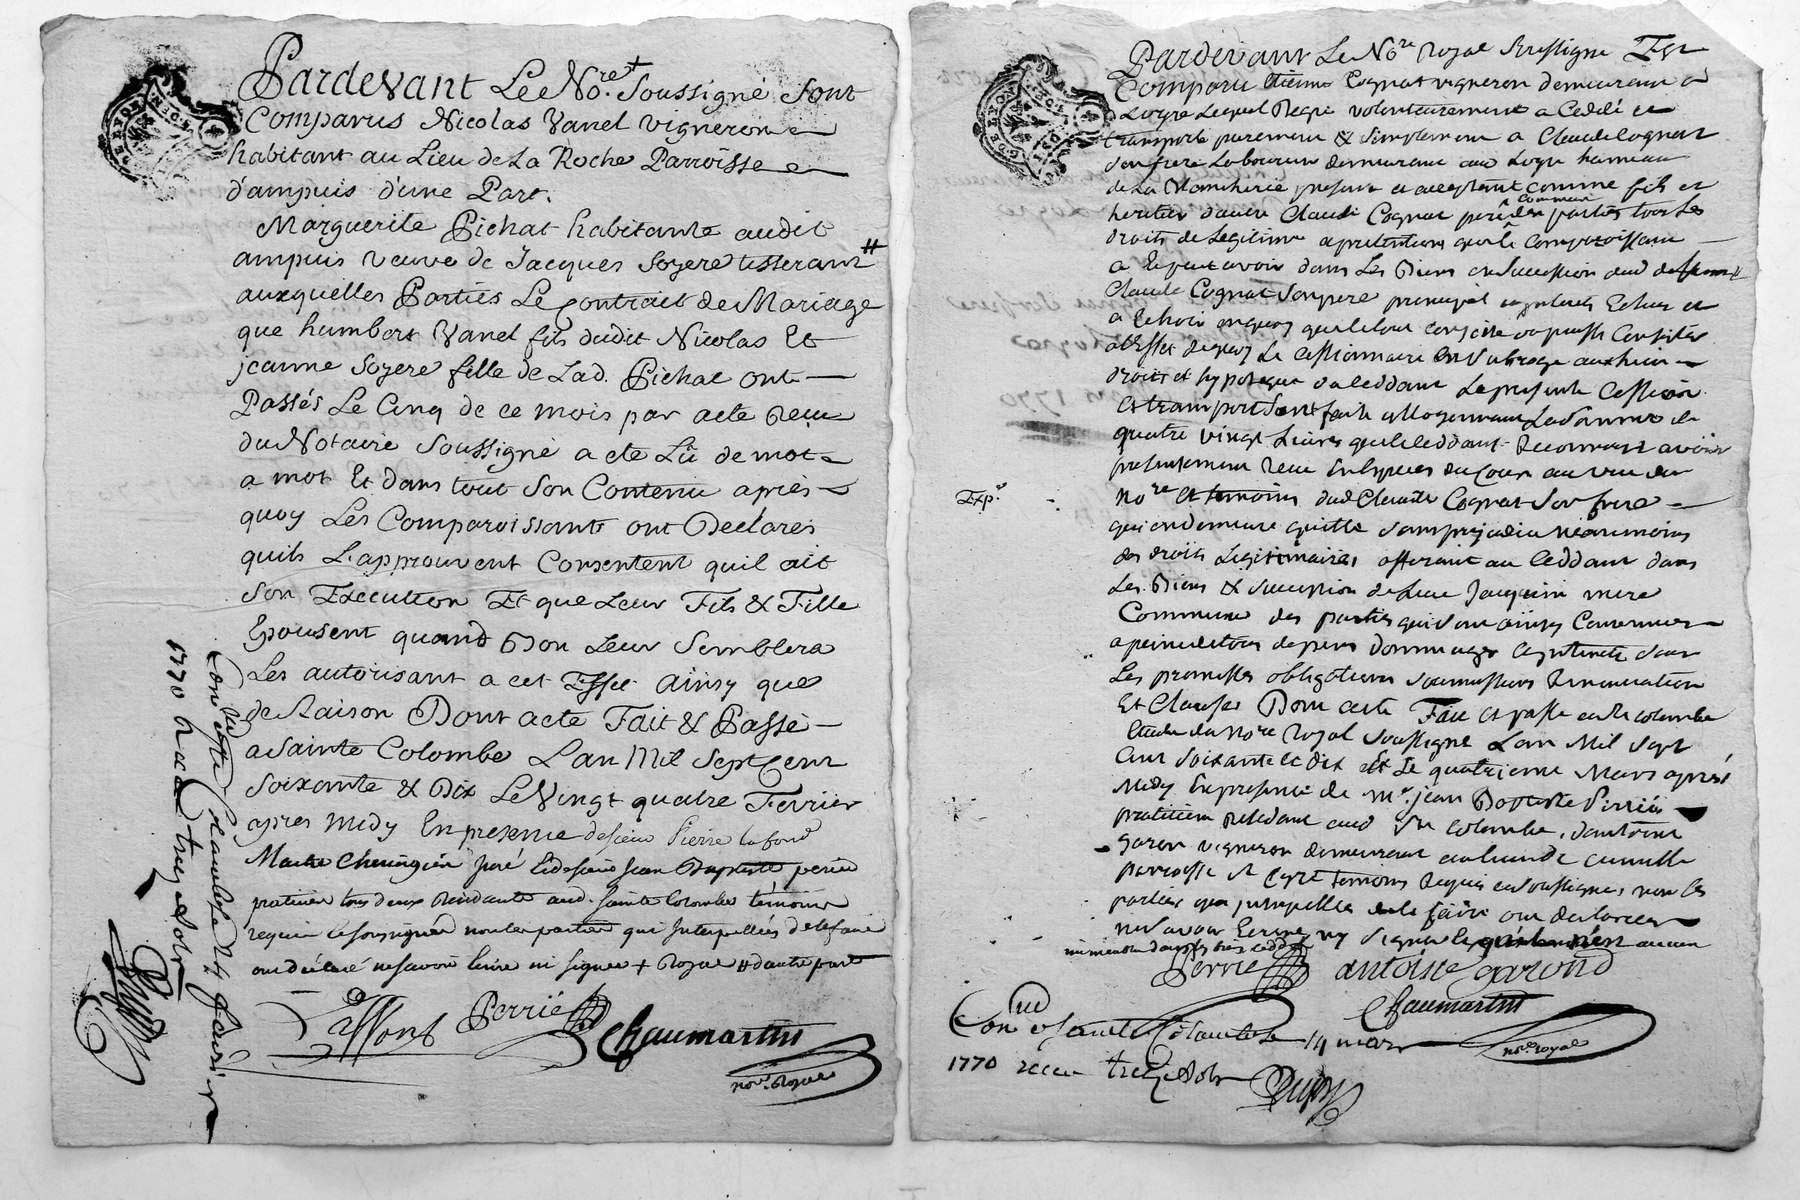 Pardevant Le No.re + Soussigné Sont
Comparus Nicolas Vanel Vigneron
habitant au Lieu de La Roche Parroisse
d'ampuis d'une Part.
Marguerite Pichat habitante audit
ampuis veuve de Jacques Soyere tisserant #
auxquelles Parties Le Contrait de Mariage
que humbert Vanel fils dudit Nicolas Et
jeanne Soyere fille de Lad. Pichat ont
Passés Le Cinq de ce mois par acte Recu
du Notaire Soussigné acte Lû de mot
a mot Et dans tout Son Contenu après
quoy Les Comparoissants ont Declarés
quils L'approuvent Consentent quil ait
Son Execution Et que Leur Fils & Fille
Epousent quand Bon Leur Semblera
Les autorisant a cet Effet ainsy que
de Raison Dont acte Fait & Passé
a Sainte Colombe L'an Mil Sept Cent
Soixante & Dix Le Vingt quatre Fevrier
apres Midy En presence de sieur Pierre lafond
Maitre Chirurgien juré & de sieur jean Baptiste perrié
praticien tous deux Residants aud. Sainte Colombe témoins
requis & soussignés non les parties qui Interpellées de le faire
ont déclaré ne savoir écrire ni signer + Royal # d'autre part
Laffont Perrié Chaumartin
no.re Royal
Con.lé à Ste Colombe le 24 fevrier
1770 recu treize sols
Pardevant Le No.re Royal Soussigné Est
Comparu Etienne Cognat vigneron demeurant a
Loyre Lequel De gré volontairement a Ceddé et
transporté purement & Simplement a Claude Cognat
Son frere Laboureur demeurant aud Loyre hameau
de La Plancherie present et acceptant comme fils et
heritier d'autre Claude Cognat pere commun des parties tous Les
droits de Legitime & pretentions que le Comparoissant
a & peut avoir dans Les Biens & Succession dud defunt
Claude Cognat Son pere principal interets Echus et
a Echoir en quoy que le tout consiste ou puisse Consister
a l'Effet de quoy Le Cessionnaire est Subrogé aux
droits et hypoteque du Ceddant La presente Cession
Et transport Sont faits Moyennant La Somme de
quatre vingt Livres que le Ceddant Reconnait avoir
presentement Receu En Especes du Cour au vu du
No.re Et temoins dud Claude Cognat Son frere
Exp.é
qui en demeure quitte Sans prejudice neanmoins
des droits Legitimaires afferant au Ceddant dans
Les Biens & Succession de mere
Commune des parties qui Sont ainsy Convenues
a peine de tous depens dommages & interets Sous
Les promesses obligations soumissions Renonciation
Et Clauses Dont acte Fait et passé a Ste Colombe
Etude du No.re Royal Soussigné L'an Mil Sept
Cent Soixante et dix Et Le quatrieme Mars aprés
Midy En presence de M.e jean Baptiste Perrié
praticien Residant aud Ste Colombe, d'antoine
garon vigneron demeurant
parroisse St Cyr temoins Requis & Soussignés non les
parties qui interpellées de le faire ont declarées
ne Savoir Ecrire ny Signer
Perrié antoine garond
Chaumartin
no.re Royal
Con.lé a Sainte Colombe le 14 mars
1770 receu treize sols